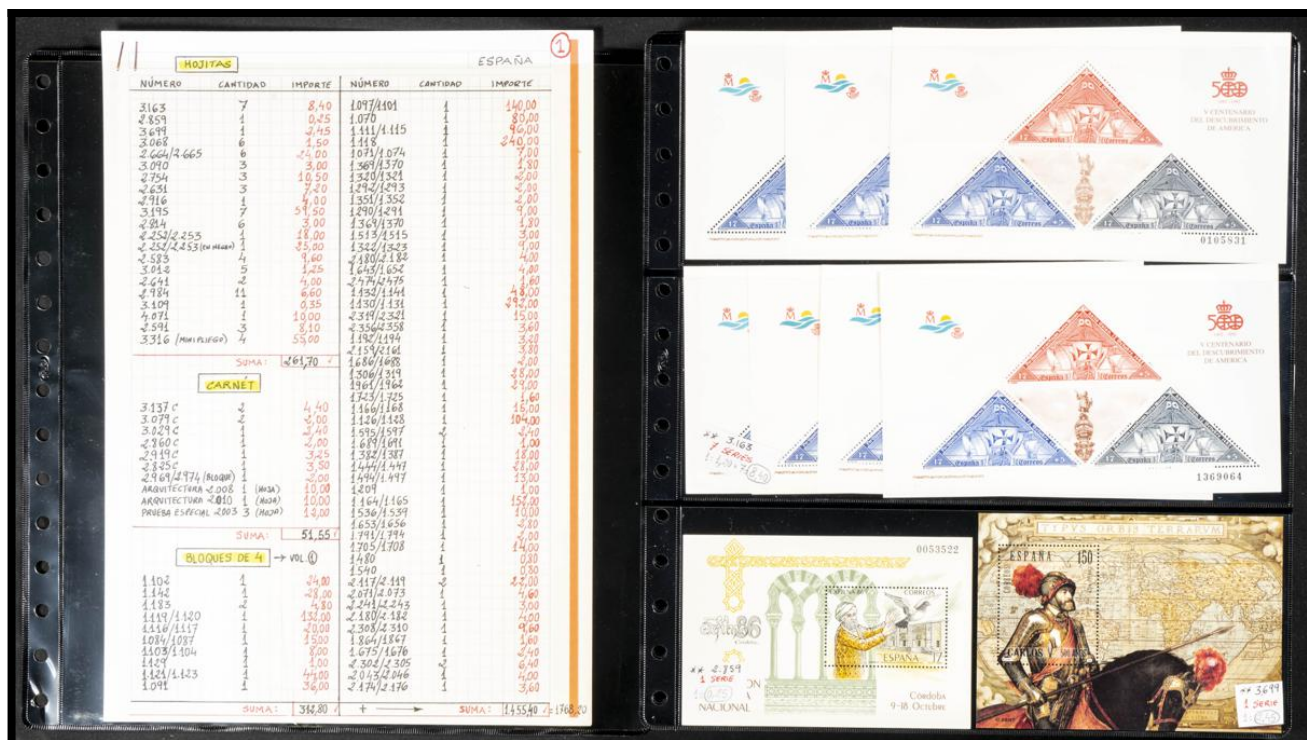 1
HOJITAS
ESPAÑA
NÚMERO CANTIDAD IMPORTE
3.163 7 8,40
2.859 1 0,25
3.699 1 2,45
3.068 6 1,50
2.664/2.665 6 24,00
3.090 3 3,00
2.754 3 10,50
2.631 3 7,20
2.916 1 4,00
3.195 7 59,50
2.814 6 3,00
2.252/2.253 1 18,00
2.252/2.253 (EN NEGRO) 1 25,00
2.583 4 9,60
3.012 5 1,25
2.641 2 4,00
2.984 11 6,60
3.109 1 0,35
4.071 1 10,00
2.591 3 8,10
3.316 (MINIPLIEGO) 4 55,00
SUMA: 261,70
CARNÉT
3.137 c 2 4,40
3.079 c 2 2,00
3.029 c 1 2,40
2.860 c 1 2,00
2.919 c 1 3,25
2.825 c 1 3,50
2.969/2.974 (BLOQUE) 1 2,00
ARQUITECTURA 2.008 1 (HOJA) 10,00
ARQUITECTURA 2.010 1 (HOJA) 10,00
PRUEBA ESPECIAL 2003 3 (HOJA) 12,00
SUMA: 51,55
BLOQUES DE 4 → VOL. ①
1.102 1 24,00
1.142 1 28,00
1.183 2 4,80
1.119/1.120 1 132,00
1.116/1.117 1 20,00
1.084/1.087 1 15,00
1.103/1.104 1 8,00
1.129 1 1,00
1.121/1.123 1 44,00
1.091 1 36,00
SUMA: 312,80 + →
NÚMERO CANTIDAD IMPORTE
1.097/1.101 1 140,00
1.070 1 80,00
1.111/1.115 1 96,00
1.118 1 240,00
1.071/1.074 1 7,00
1.369/1.370 1 1,80
1.320/1.321 1 2,00
1.292/1.293 1 2,00
1.351/1.352 1 2,00
1.290/1.291 1 9,00
1.369/1.370 1 1,80
1.513/1.515 1 3,00
1.322/1.323 1 9,00
2.180/2.182 1 4,00
1.643/1.652 1 4,00
2.474/2.475 1 1,60
1.132/1.141 1 48,00
1.130/1.131 1 292,00
2.319/2.321 1 15,00
2.356/2.358 1 3,60
1.192/1.194 1 3,20
2.159/2.161 1 3,80
1.686/1.688 1 2,00
1.306/1.319 1 28,00
1.961/1.962 1 29,00
1.723/1.725 1 1,60
1.166/1.168 1 16,00
1.126/1.128 1 104,00
1.595/1.597 2 2,40
1.689/1.691 1 1,00
1.382/1.387 1 18,00
1.444/1.447 1 28,00
1.494/1.497 1 13,00
1.209 1 1,00
1.164/1.165 1 152,00
1.536/1.539 1 10,00
1.653/1.656 1 2,80
1.791/1.794 1 2,00
1.705/1.708 1 14,00
1.480 1 0,80
1.540 1 0,80
2.117/2.119 2 22,00
2.071/2.073 1 4,60
2.241/2.243 1 3,00
2.180/2.182 1 4,00
2.308/2.310 1 9,60
1.864/1.867 1 1,60
1.675/1.676 1 2,40
2.302/2.305 2 6,40
2.043/2.046 1 4,00
2.174/2.176 1 3,60
SUMA: 1.455,40 = 1768,20
500
V CENTENARIO
DEL DESCUBRIMIENTO
DE AMERICA
17 España Correos
17 España Correos
0105831
500
V CENTENARIO
DEL DESCUBRIMIENTO
DE AMERICA
17 España Correos
17 España Correos
** 3.163
7 SERIES
8,40
1369064
0053522
exfilna 86
CORREOS
ESPAÑA 17
** 2.859
1 SERIE
0,25
NACIONAL
Córdoba
9-18 Octubre
TYPVS ORBIS TERRARVM
ESPAÑA 150
CARLOS V
** 3.699
1 SERIE
2,45